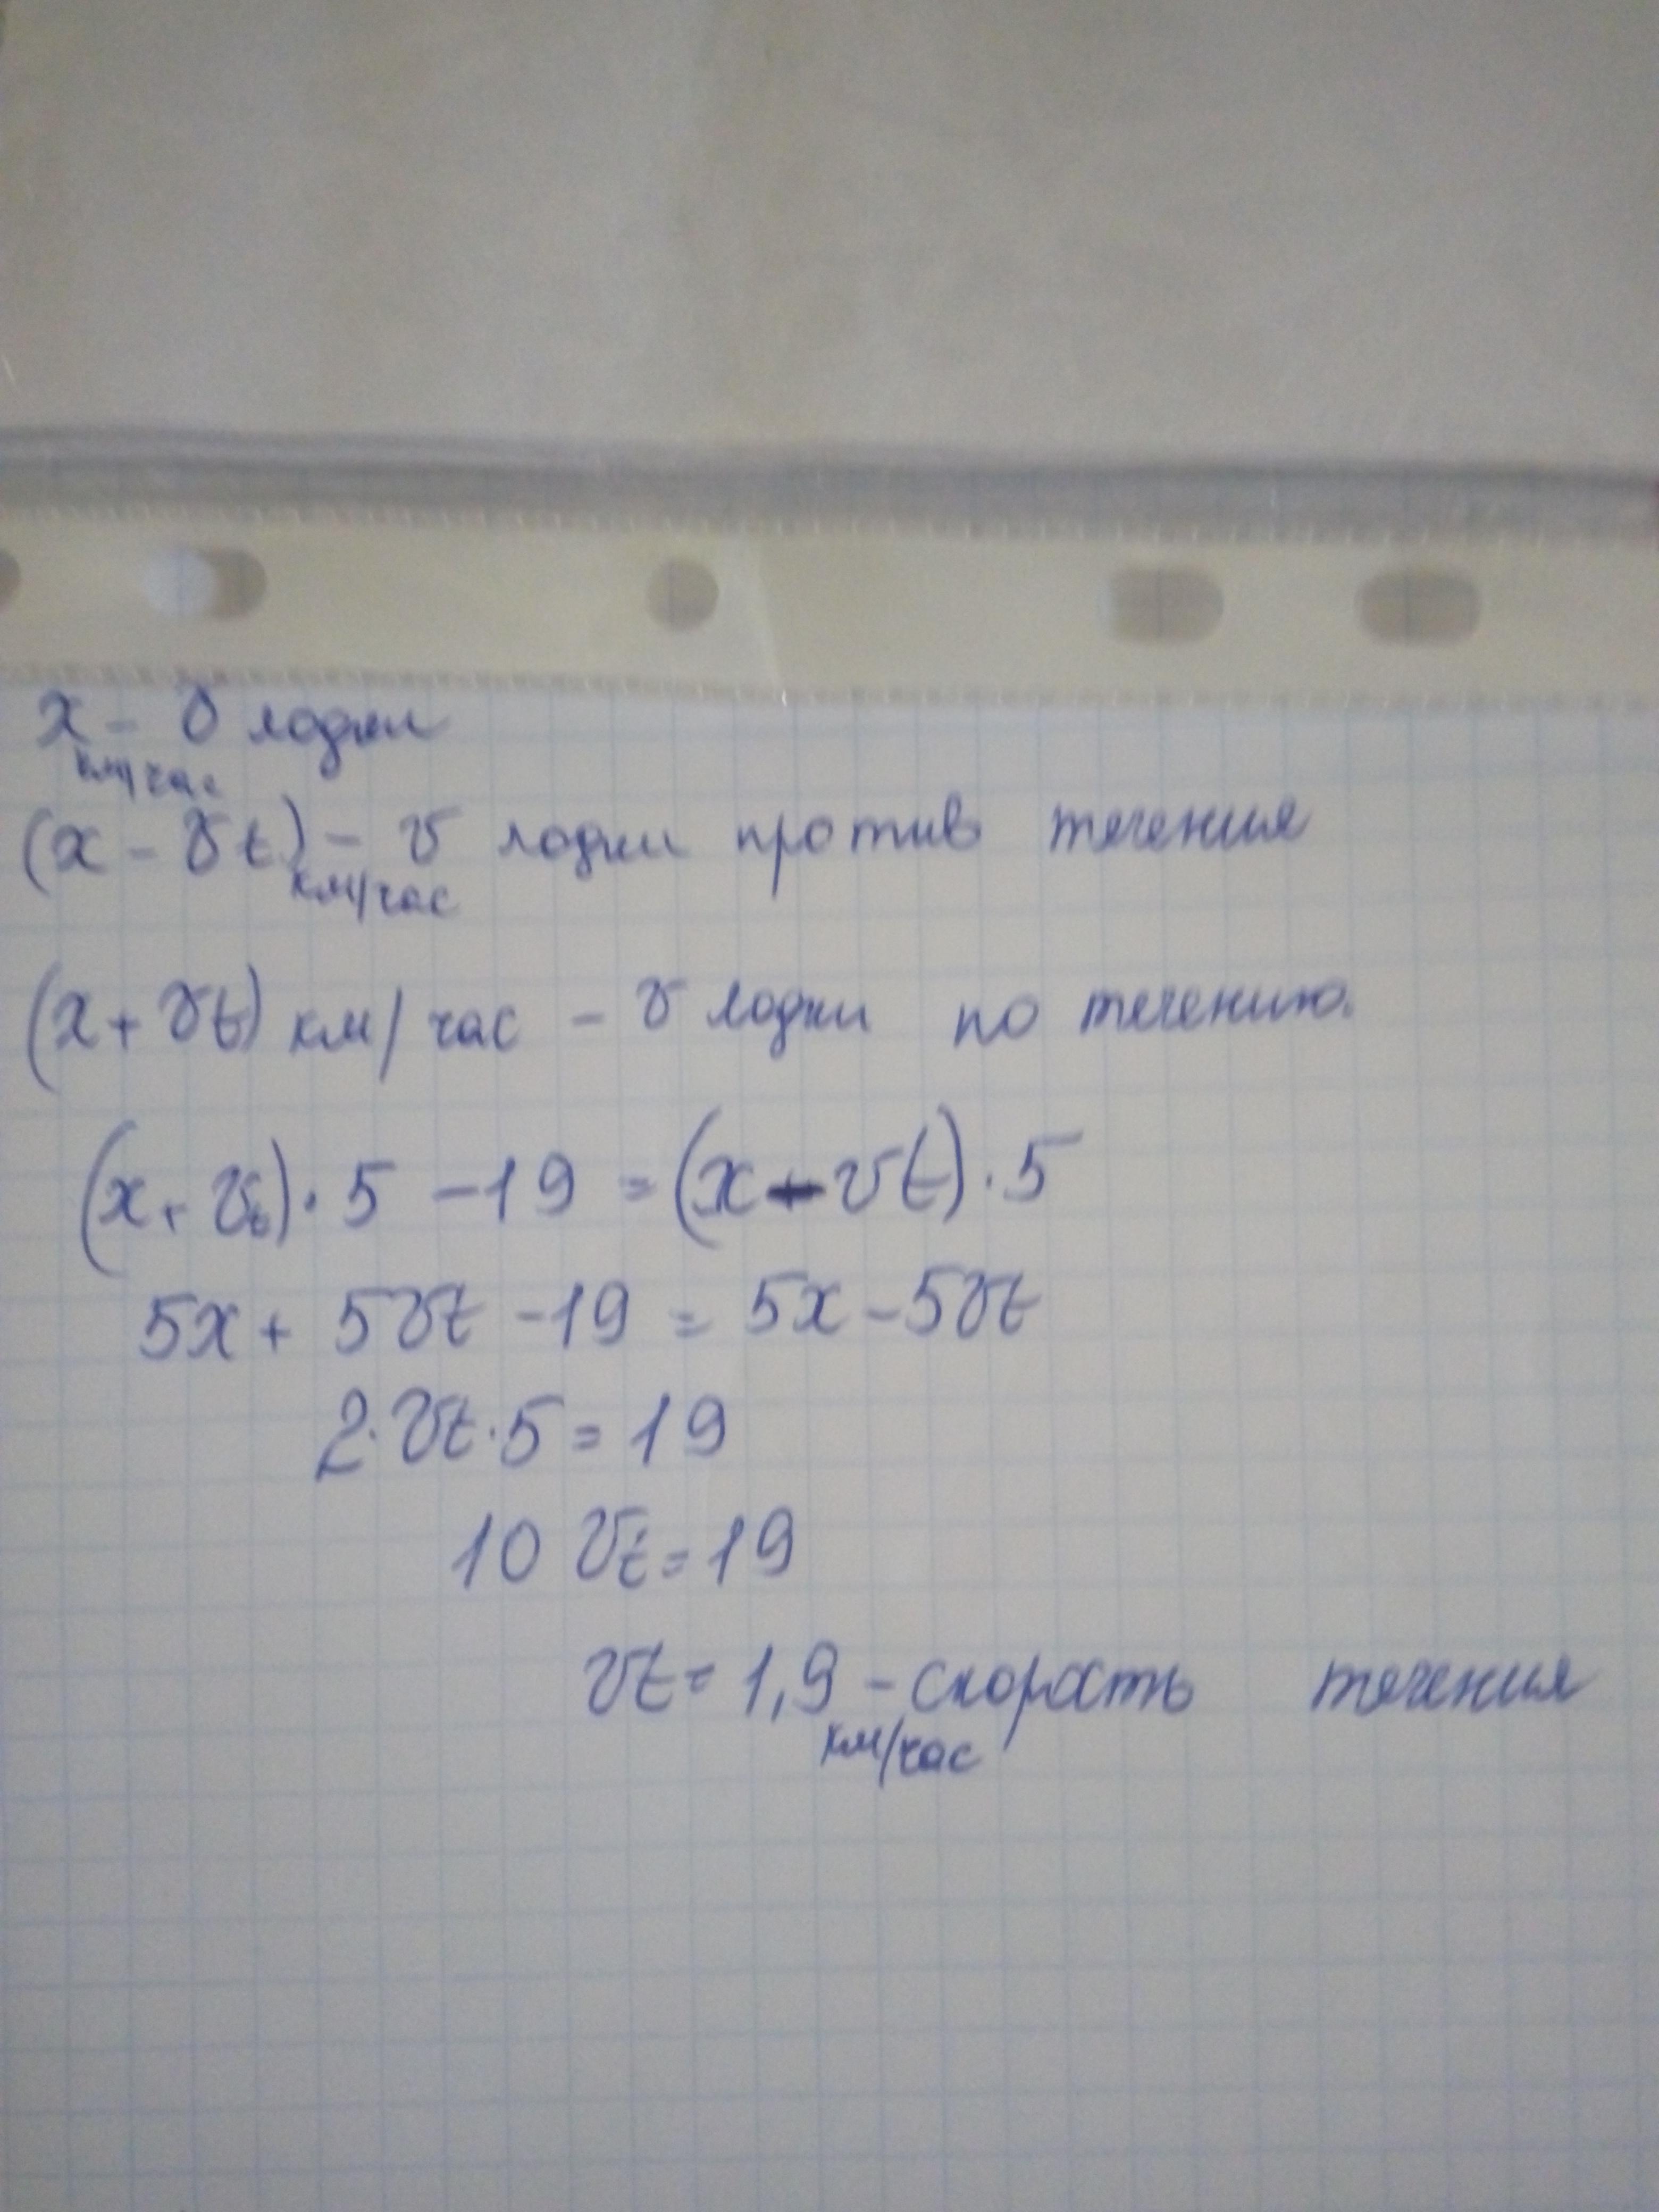 x - v лодки
км/час
(x - vt) - v лодки против течения
км/час
(x + vt) км/час - v лодки по течению.
(x + vt) · 5 - 19 = (x - vt) · 5
5x + 5vt - 19 = 5x - 5vt
2 · vt · 5 = 19
10 vt = 19
vt = 1,9 - скорость течения
км/час